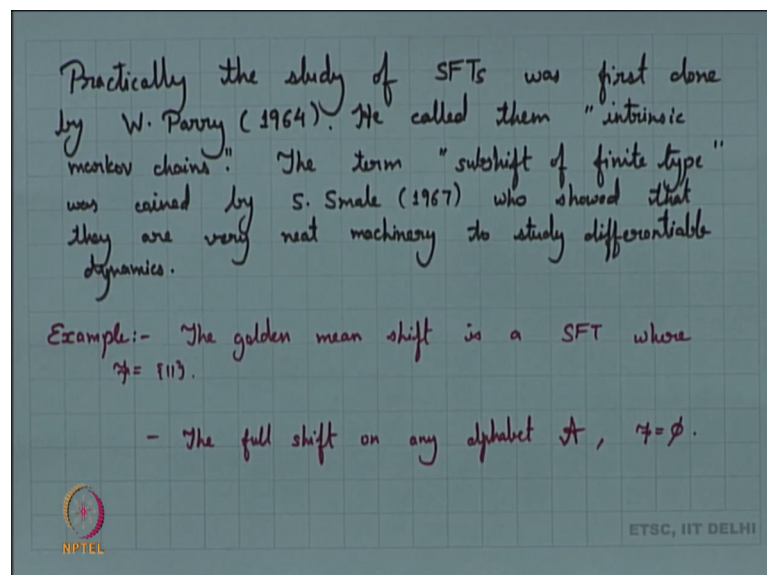 Practically the study of SFTs was first done
by W. Parry (1964). He called them "intrinsic
markov chains". The term "subshift of finite type"
was coined by S. Smale (1967) who showed that
they are very neat machinery to study differentiable
dynamics.
Example:- The golden mean shift is a SFT where
𝓕 = {11}.
- The full shift on any alphabet A, 𝓕 = φ.
NPTEL
ETSC, IIT DELHI